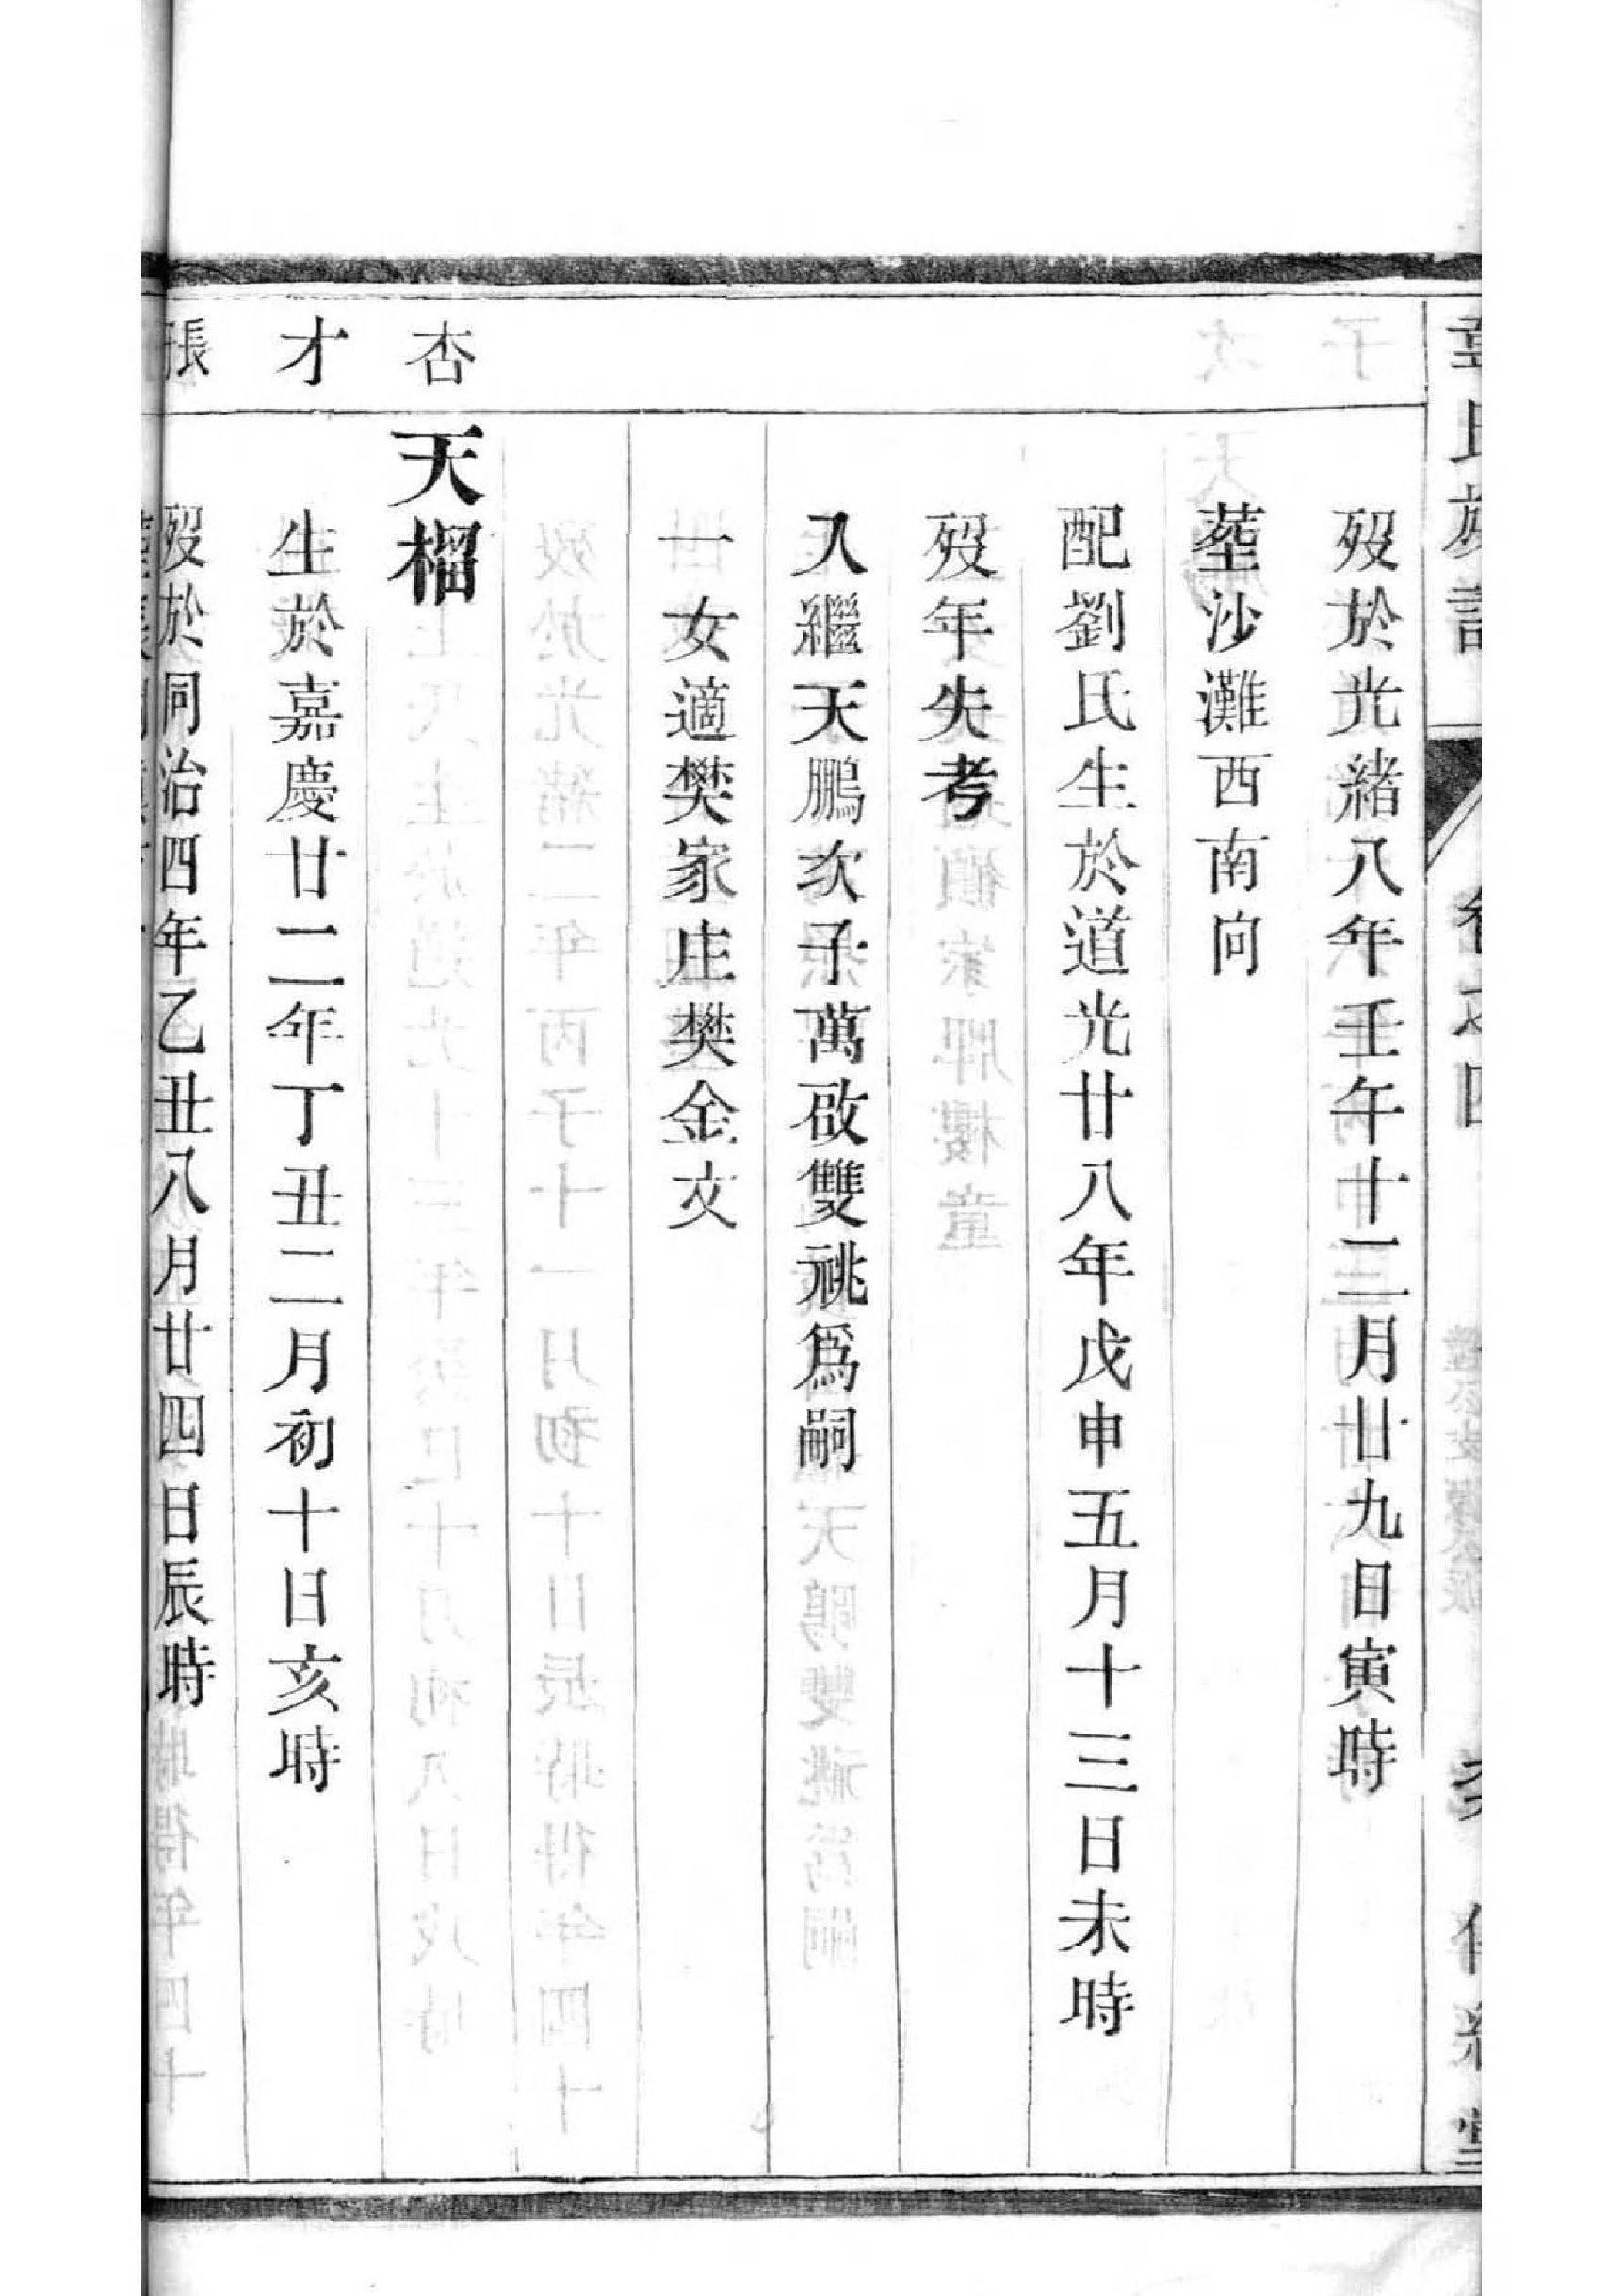 童氏族譜 卷之四
歿於光緒八年壬午十二月廿九日寅時
塟沙灘西南向
配劉氏生於道光廿八年戊申五月十三日未時
歿年失考
入繼天鵬次子萬啟雙祧爲嗣
一女適樊家庄樊金文
杏 天榴
才 生於嘉慶廿二年丁丑二月初十日亥時
張 歿於同治四年乙丑八月廿四日辰時